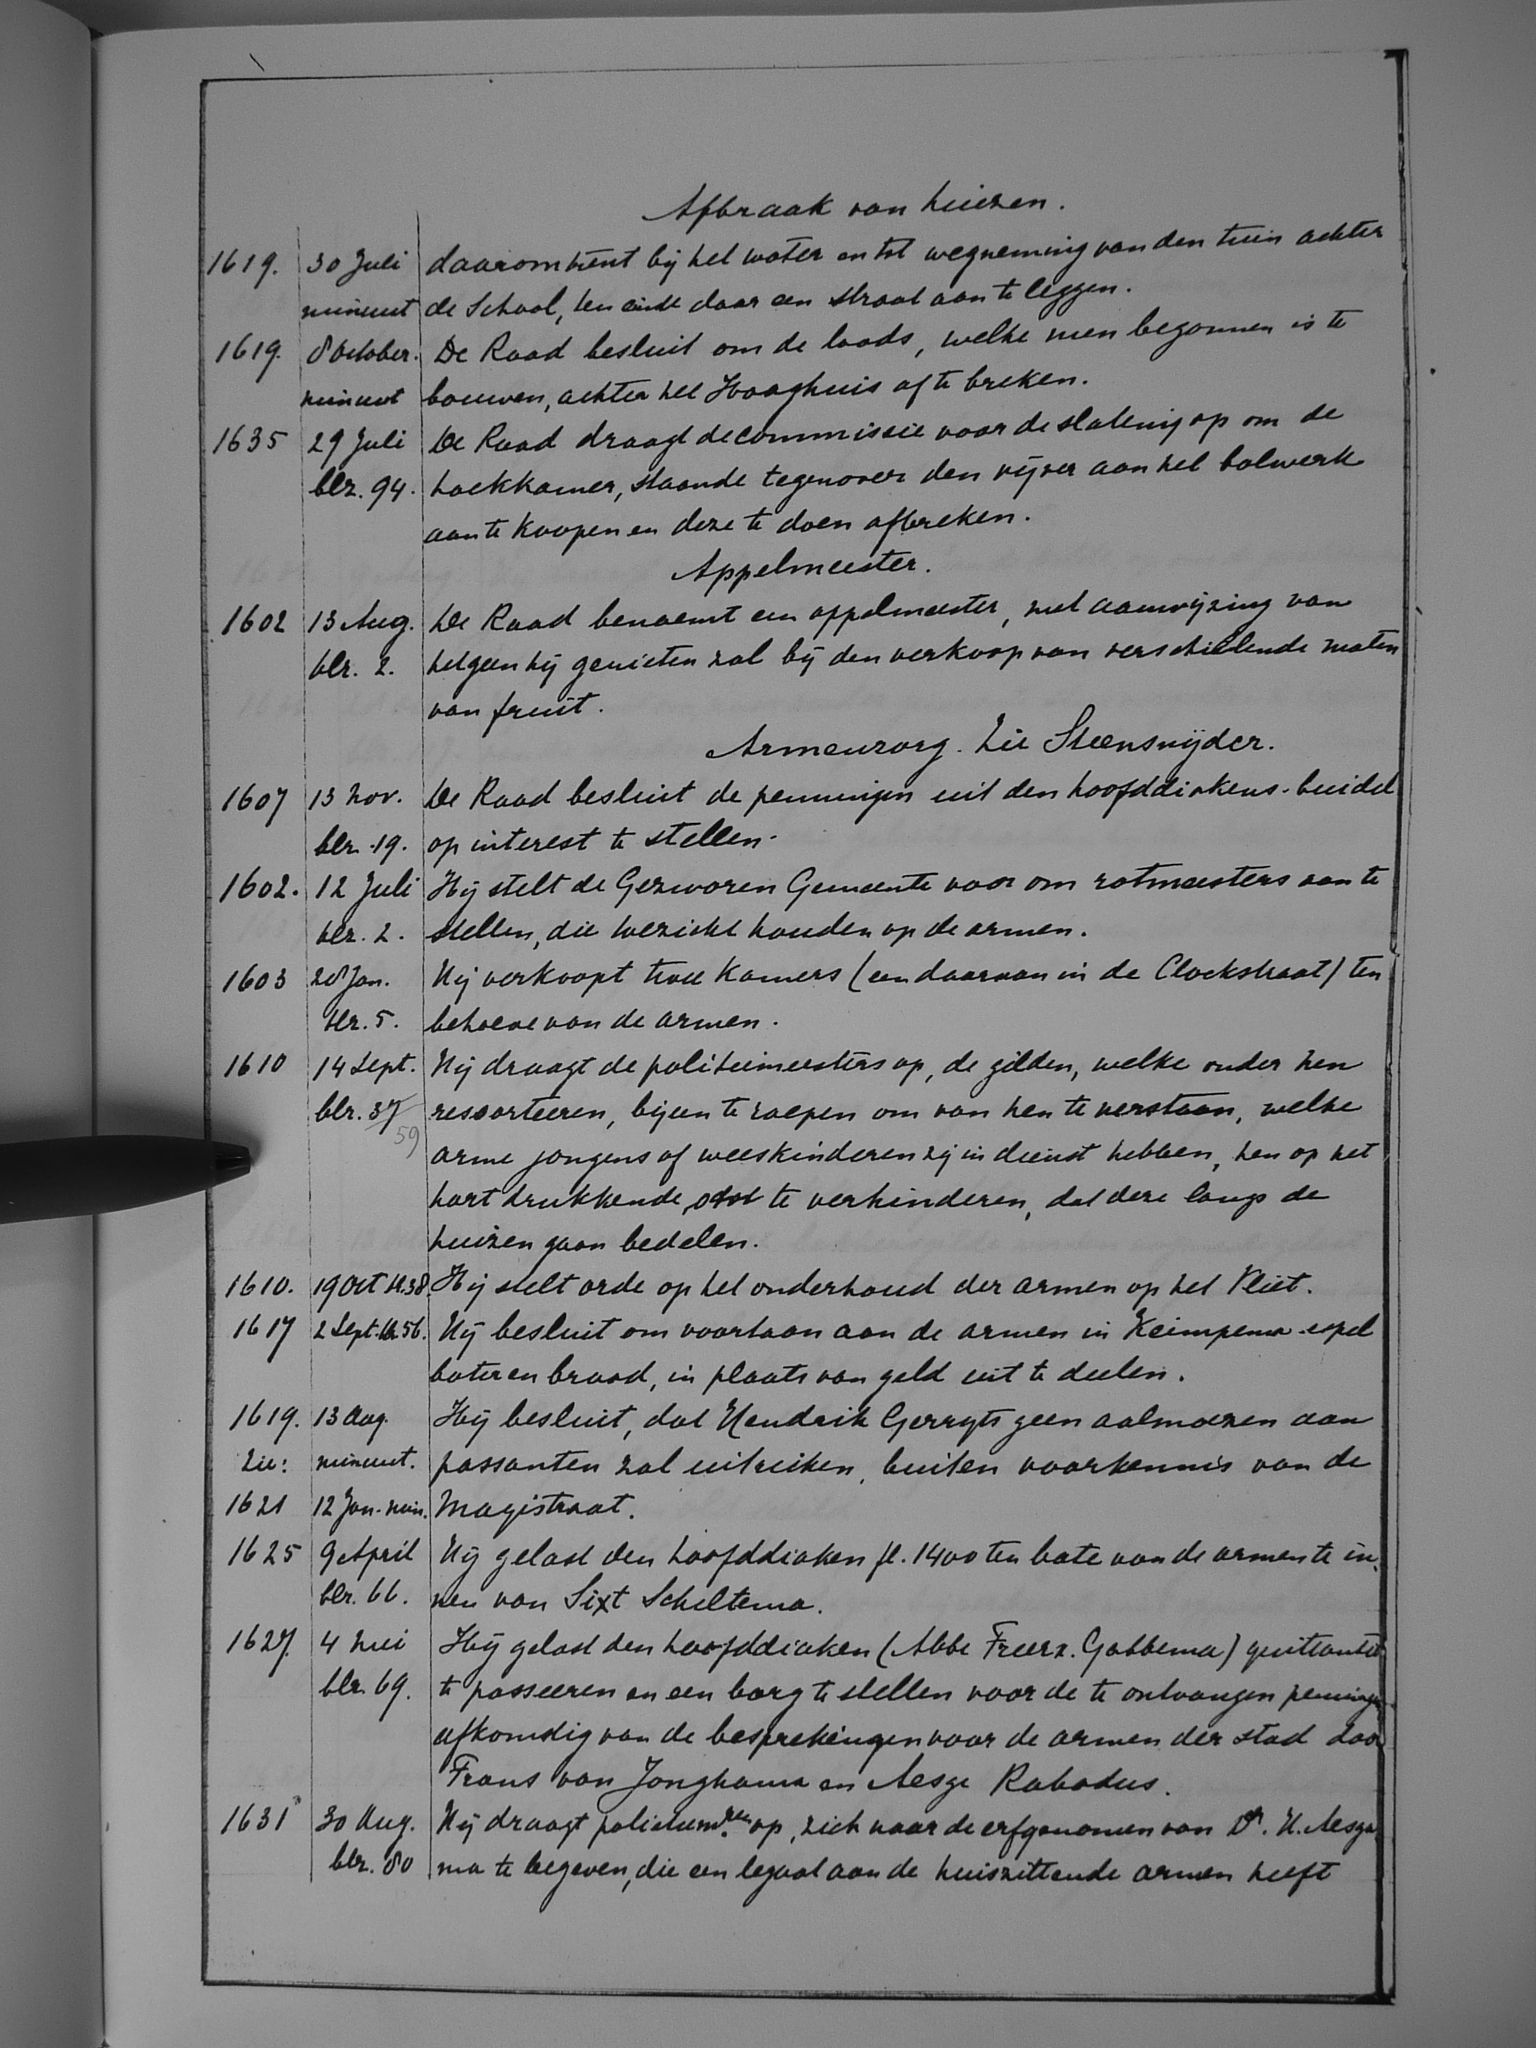 Afbraak van huizen.
1619. 30 Juli daaromtrent bij het water en tot wegneming van den tuin achter
minuut de School, ten einde daar een straat aan te leggen.
1619. 8 October. De Raad besluit om de loods, welke men begonnen is te
minuut bouwen, achter het Hooghuis af te breken.
1635 29 Juli De Raad draagt de commissie voor de slating op om de
blz. 94. hoekkamer, staande tegenover den vijver aan het bolwerk
aan te koopen en deze te doen afbreken.
Appelmeester.
1602 13 Aug. De Raad benoemt een appelmeester, met aanwijzing van
blz. 2. hetgeen hij genieten zal bij den verkoop van verschillende maten
van fruit.
Armenzorg. Zie Steensnijder.
1607 13 Nov. De Raad besluit de penningen uit den hoofddiakens-buidel
blz. 19. op interest te stellen.
1602. 12 Juli Hij stelt de Gezworen Gemeente voor om rotmeesters aan te
blz. 2. stellen, die toezicht houden op de armen.
1603 28 Jan. Hij verkoopt twee kamers (een daarvan in de Clockstraat) ten
blz. 5. behoeve van de armen.
1610 14 Sept. Hij draagt de politiemeesters op, de gilden, welke onder hen
blz. 37 ressorteeren, bijeen te roepen om van hen te verstaan, welke
59
arme jongens of weeskinderen zij in dienst hebben, hen op het
hart drukkende, te verhinderen, dat deze langs de
huizen gaan bedelen.
1610. 19 Oct bl. 38. Hij stelt orde op het onderhoud der armen op het Vliet.
1617 2 Sept. bl. 56. Hij besluit om voortaan aan de armen in Keimpema-espel
boter en brood, in plaats van geld uit te deelen.
1619. 13 Aug. Hij besluit, dat Hendrik Gerryts geen aalmoezen aan
Zie: minuut. passanten zal uitreiken, buiten voorkennis van de
1621 12 Jan. min. Magistraat.
1625 9 April Hij gelast den hoofddiaken fl. 1400 ten bate van de armen te in-
blz. 66. nen van Sixt Scheltema.
1627. 4 Mei Hij gelast den hoofddiaken (Abbe Freerx. Gabbema) quitantie
blz. 69. te passeeren en een borg te stellen voor de te ontvangen penningen
afkomstig van de besprekingen voor de armen der stad door
Frans van Jonghama en Aesge Rabodus.
1631 30 Aug. Hij draagt policiemrs. op, zich naar de erfgenomen van Dr. H. Aesga-
blz. 80 ma te begeven, die een legaat aan de huiszittende armen heeft